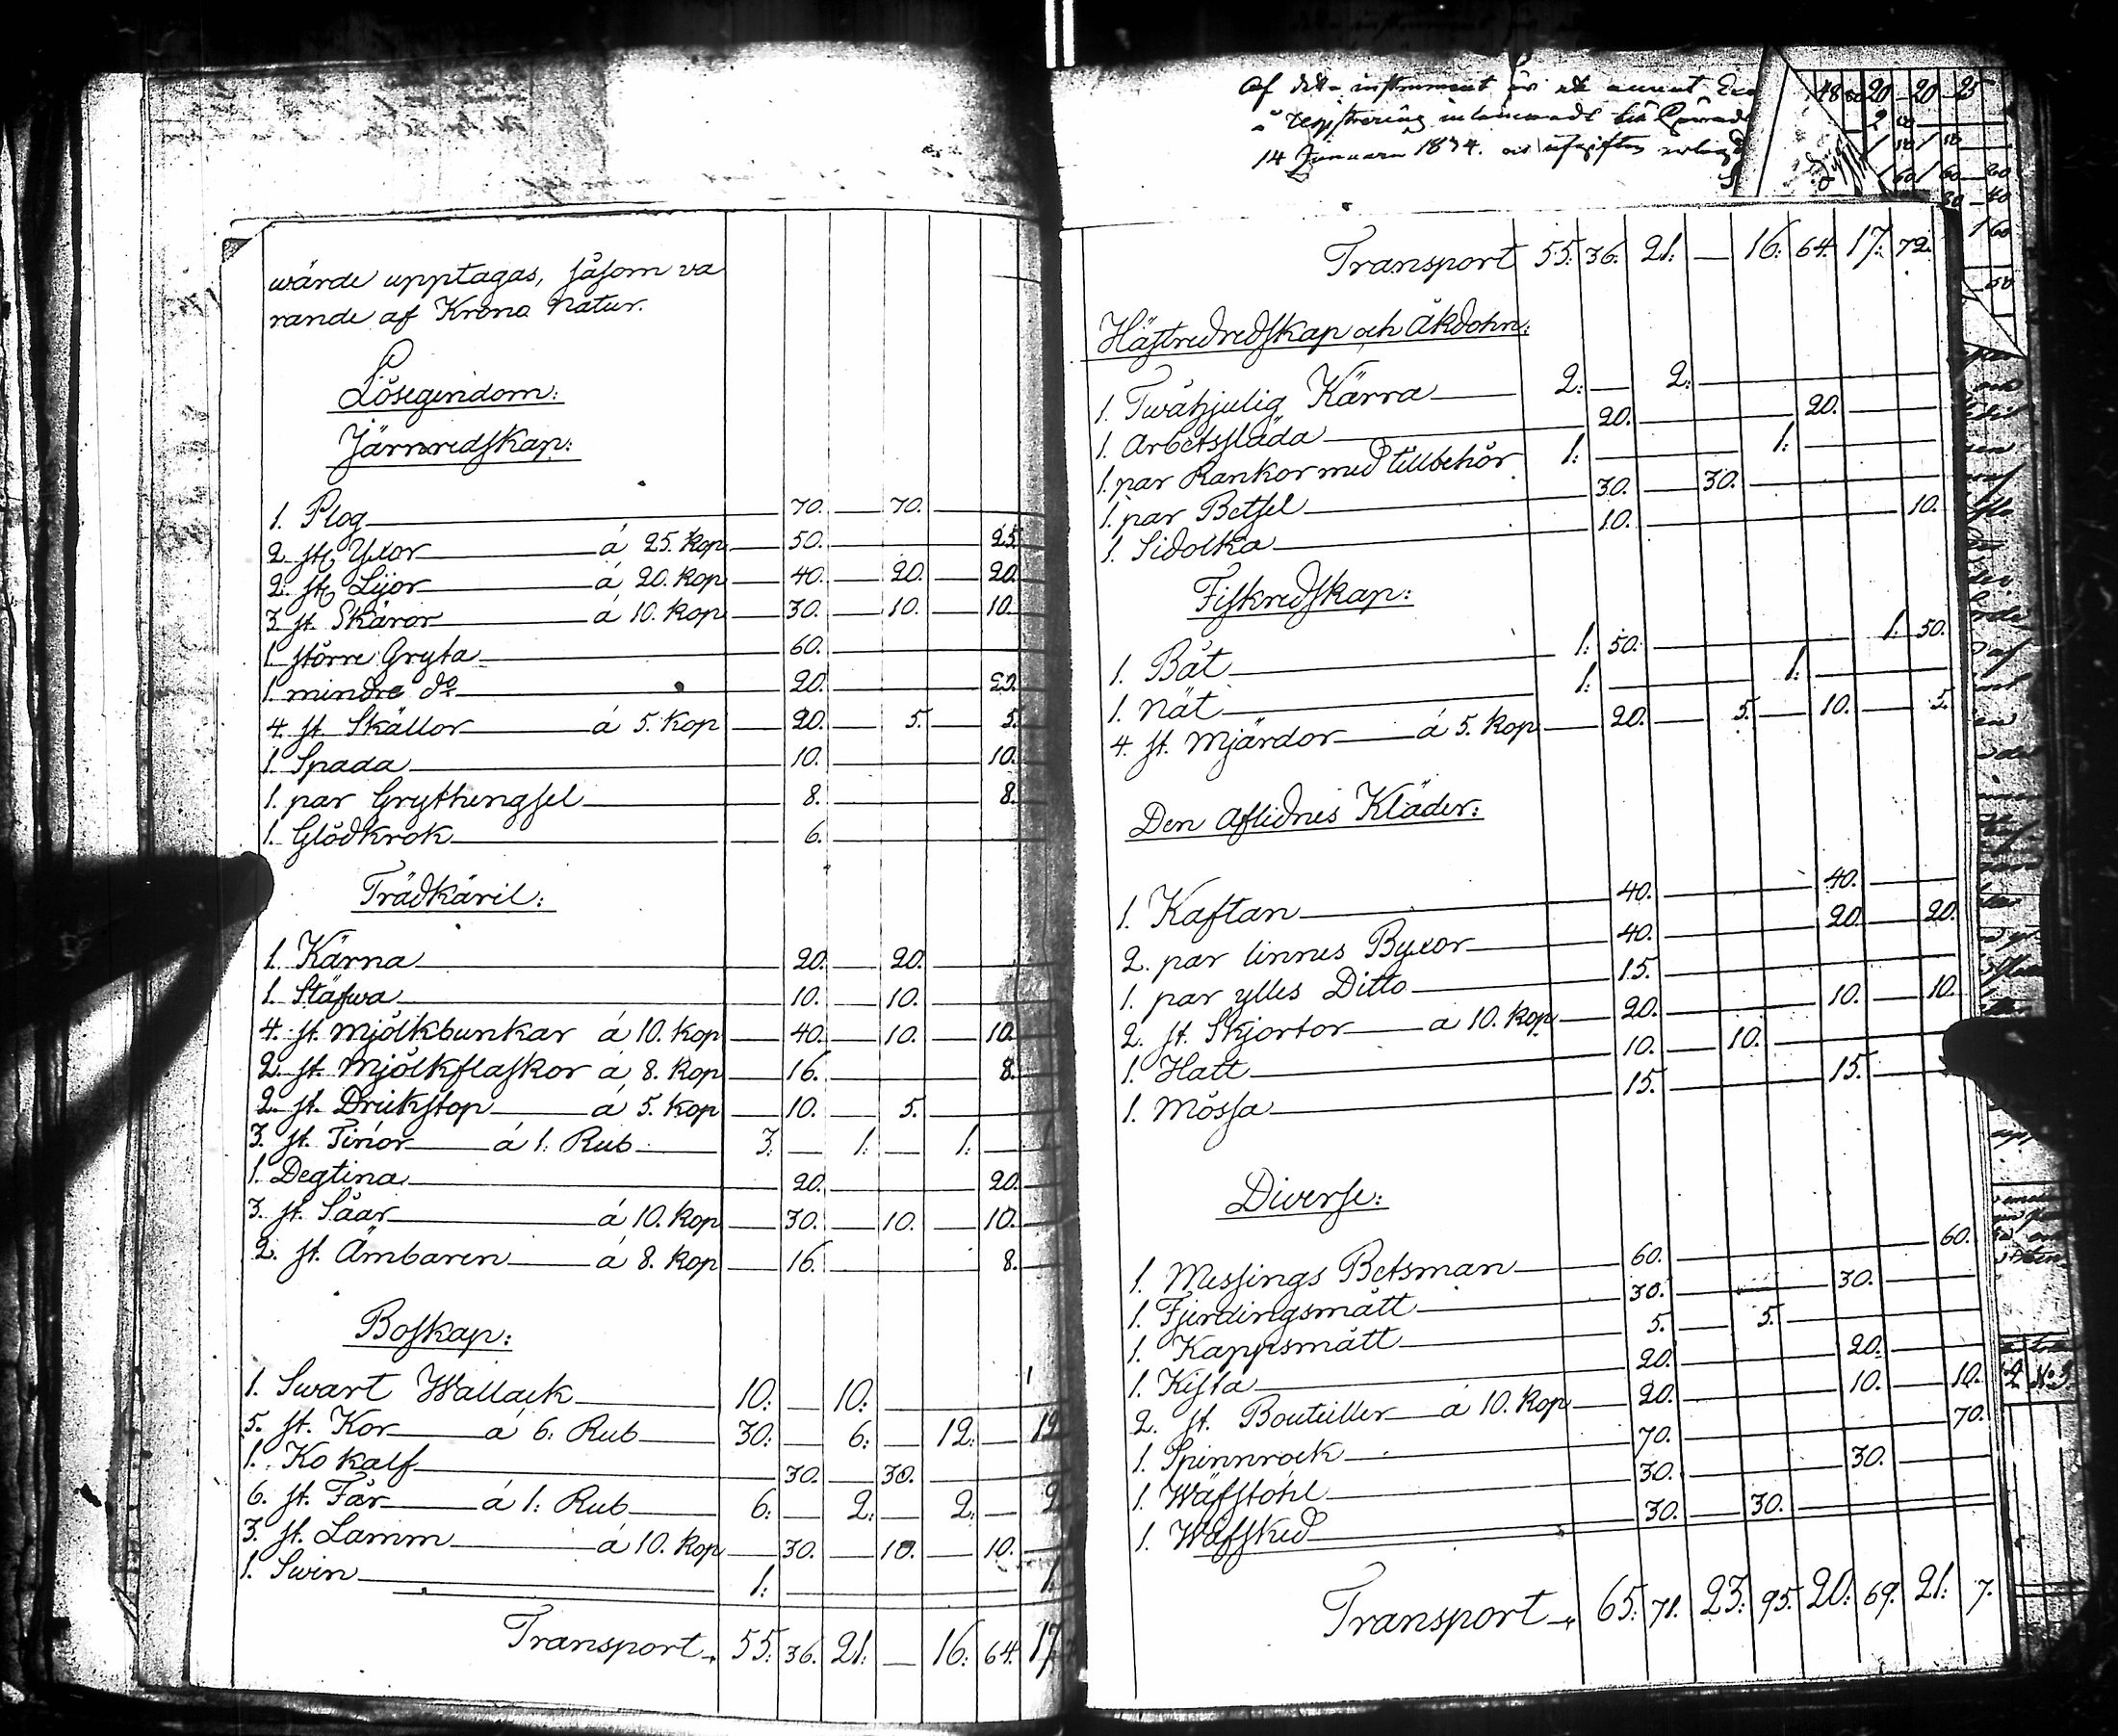 wärde upptagas, såsom va
rande af Krono natur.
Lösegendom:
Järnredskap:
1. Plog 70. 70.
2 st. Yxor á 25. kop 50. 25.
2. st. Lijor á 20. kop 40. 20. 20.
3 st. Skäror á 10. kop 30. 10. 10.
1 större Gryta 60.
1 mindre do 20. 20.
4. st. Skällor á 5. kop 20. 5. 5.
1 Spada 10. 10.
1. par Grythengsel 8. 8.
1. Glödkrok 6.
Trädkäril:
1. Kärna 20. 20.
1. Stäfwa 10. 10.
4. st. Mjölkbunkar á 10. kop 40. 10. 10.
2. st. Mjölkflaskor á 8. kop 16. 8.
2. st. Drickstop á 5. kop 10. 5.
3. st. Tinor á 1: Rub 3: 1: 1:
1. Degtina 20. 20.
3. st. Såar á 10. kop 30. 10. 10.
2. st. Ämbaren á 8. kop 16. 8.
Boskap:
1. Swart Wallack 10: 10:
5. st. Kor á 6. Rub 30: 6: 12: 12
1. Ko kalf 30. 30.
6. st. Får á 1: Rub 6: 2: 2: 2
3. st. Lamm á 10. kop 30. 10. 10.
1. Swin 1: 1.
Transport 55: 36. 21: — 16: 64. 17
Af detta instrument är ett annat
registrering inlämnadt
14 Januari 1874.
Transport 55: 36. 21: — 16: 64. 17: 72.
Hästredredskap och Åkdohn:
1. Twåhjulig Kärra 2: 2:
1. Arbetssläda 20. 20.
1. par Rankor med tillbehör 1: 1:
1. par Betsel 30. 30.
1. Sidolka 10. 10.
Fiskredskap:
1. Båt 1: 50. 1. 50.
1. Nät 1: 1:
4. st. Mjärdor á 5. kop 20. 5. 10. 5.
Den Aflidnes Kläder:
1. Kaftan 40. 40.
2. par linnes Byxor 40. 20. 20.
1. par ylles Ditto 15.
2. st. Skjortor a 10. kop 20. 10. 10.
1. Hatt 10. 10.
1. Mössa 15. 15.
Diverse:
1. Messings Betsman 60. 60.
1. Fjerdingsmått 30. 30.
1. Kappsmått 5. 5.
1. Kista 20. 20.
2. st. Bouteiller á 10. kop 20. 10. 10.
1. Spinnrock 70. 70.
1. Wäfstohl 30. 30.
1. Wäfsked 30. 30.
Transport 65: 71. 23: 95. 20: 69. 21: 7.